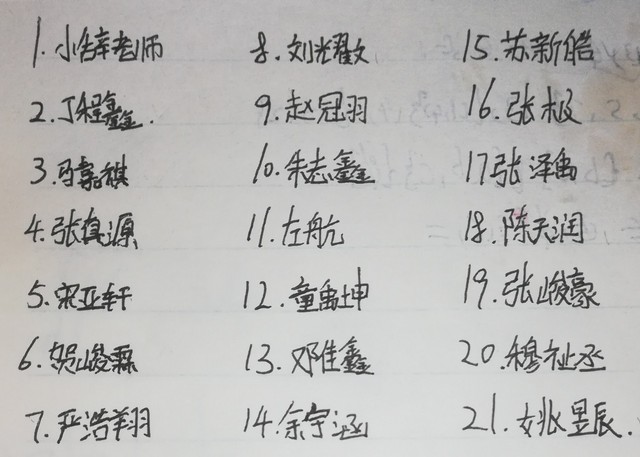 1.小辞老师
2.丁程鑫.
3.马嘉祺
4.张真源
5.宋亚轩
6.贺峻霖
7.严浩翔
8.刘耀文
9.赵冠羽
10.朱志鑫
11.左航
12.童禹坤
13.邓佳鑫
14.余宇涵
15.苏新皓
16.张极
17张泽禹
18.陈天润
19.张峻豪
20.穆祉丞
21.姚昱辰.